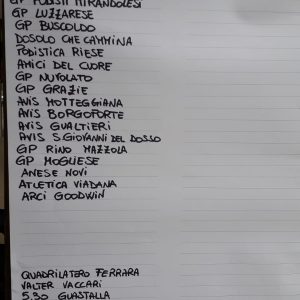 GP PODISTI MIRANDOLESI
GP LUZZARESE
GP BUSCOLDO
DOSOLO CHE CAMMINA
PODISTICA RIESE
AMICI DEL CUORE
GP NUVOLATO
GP GRAZIE
AVIS MOTTEGGIANA
AVIS BORGOFORTE
AVIS GUALTIERI
AVIS S.GIOVANNI DEL DOSSO
GP RINO MAZZOLA
GP MOGLIESE
ANESE NOVI
ATLETICA VIADANA
ARCI GOODWIN
QUADRILATERO FERRARA
VALTER VACCARI
5.30 GUASTALLA